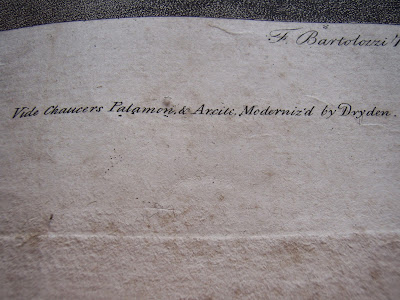 F. Bartolozzi
Vide Chaucers Palamon, & Arcite, Moderniz'd by Dryden.